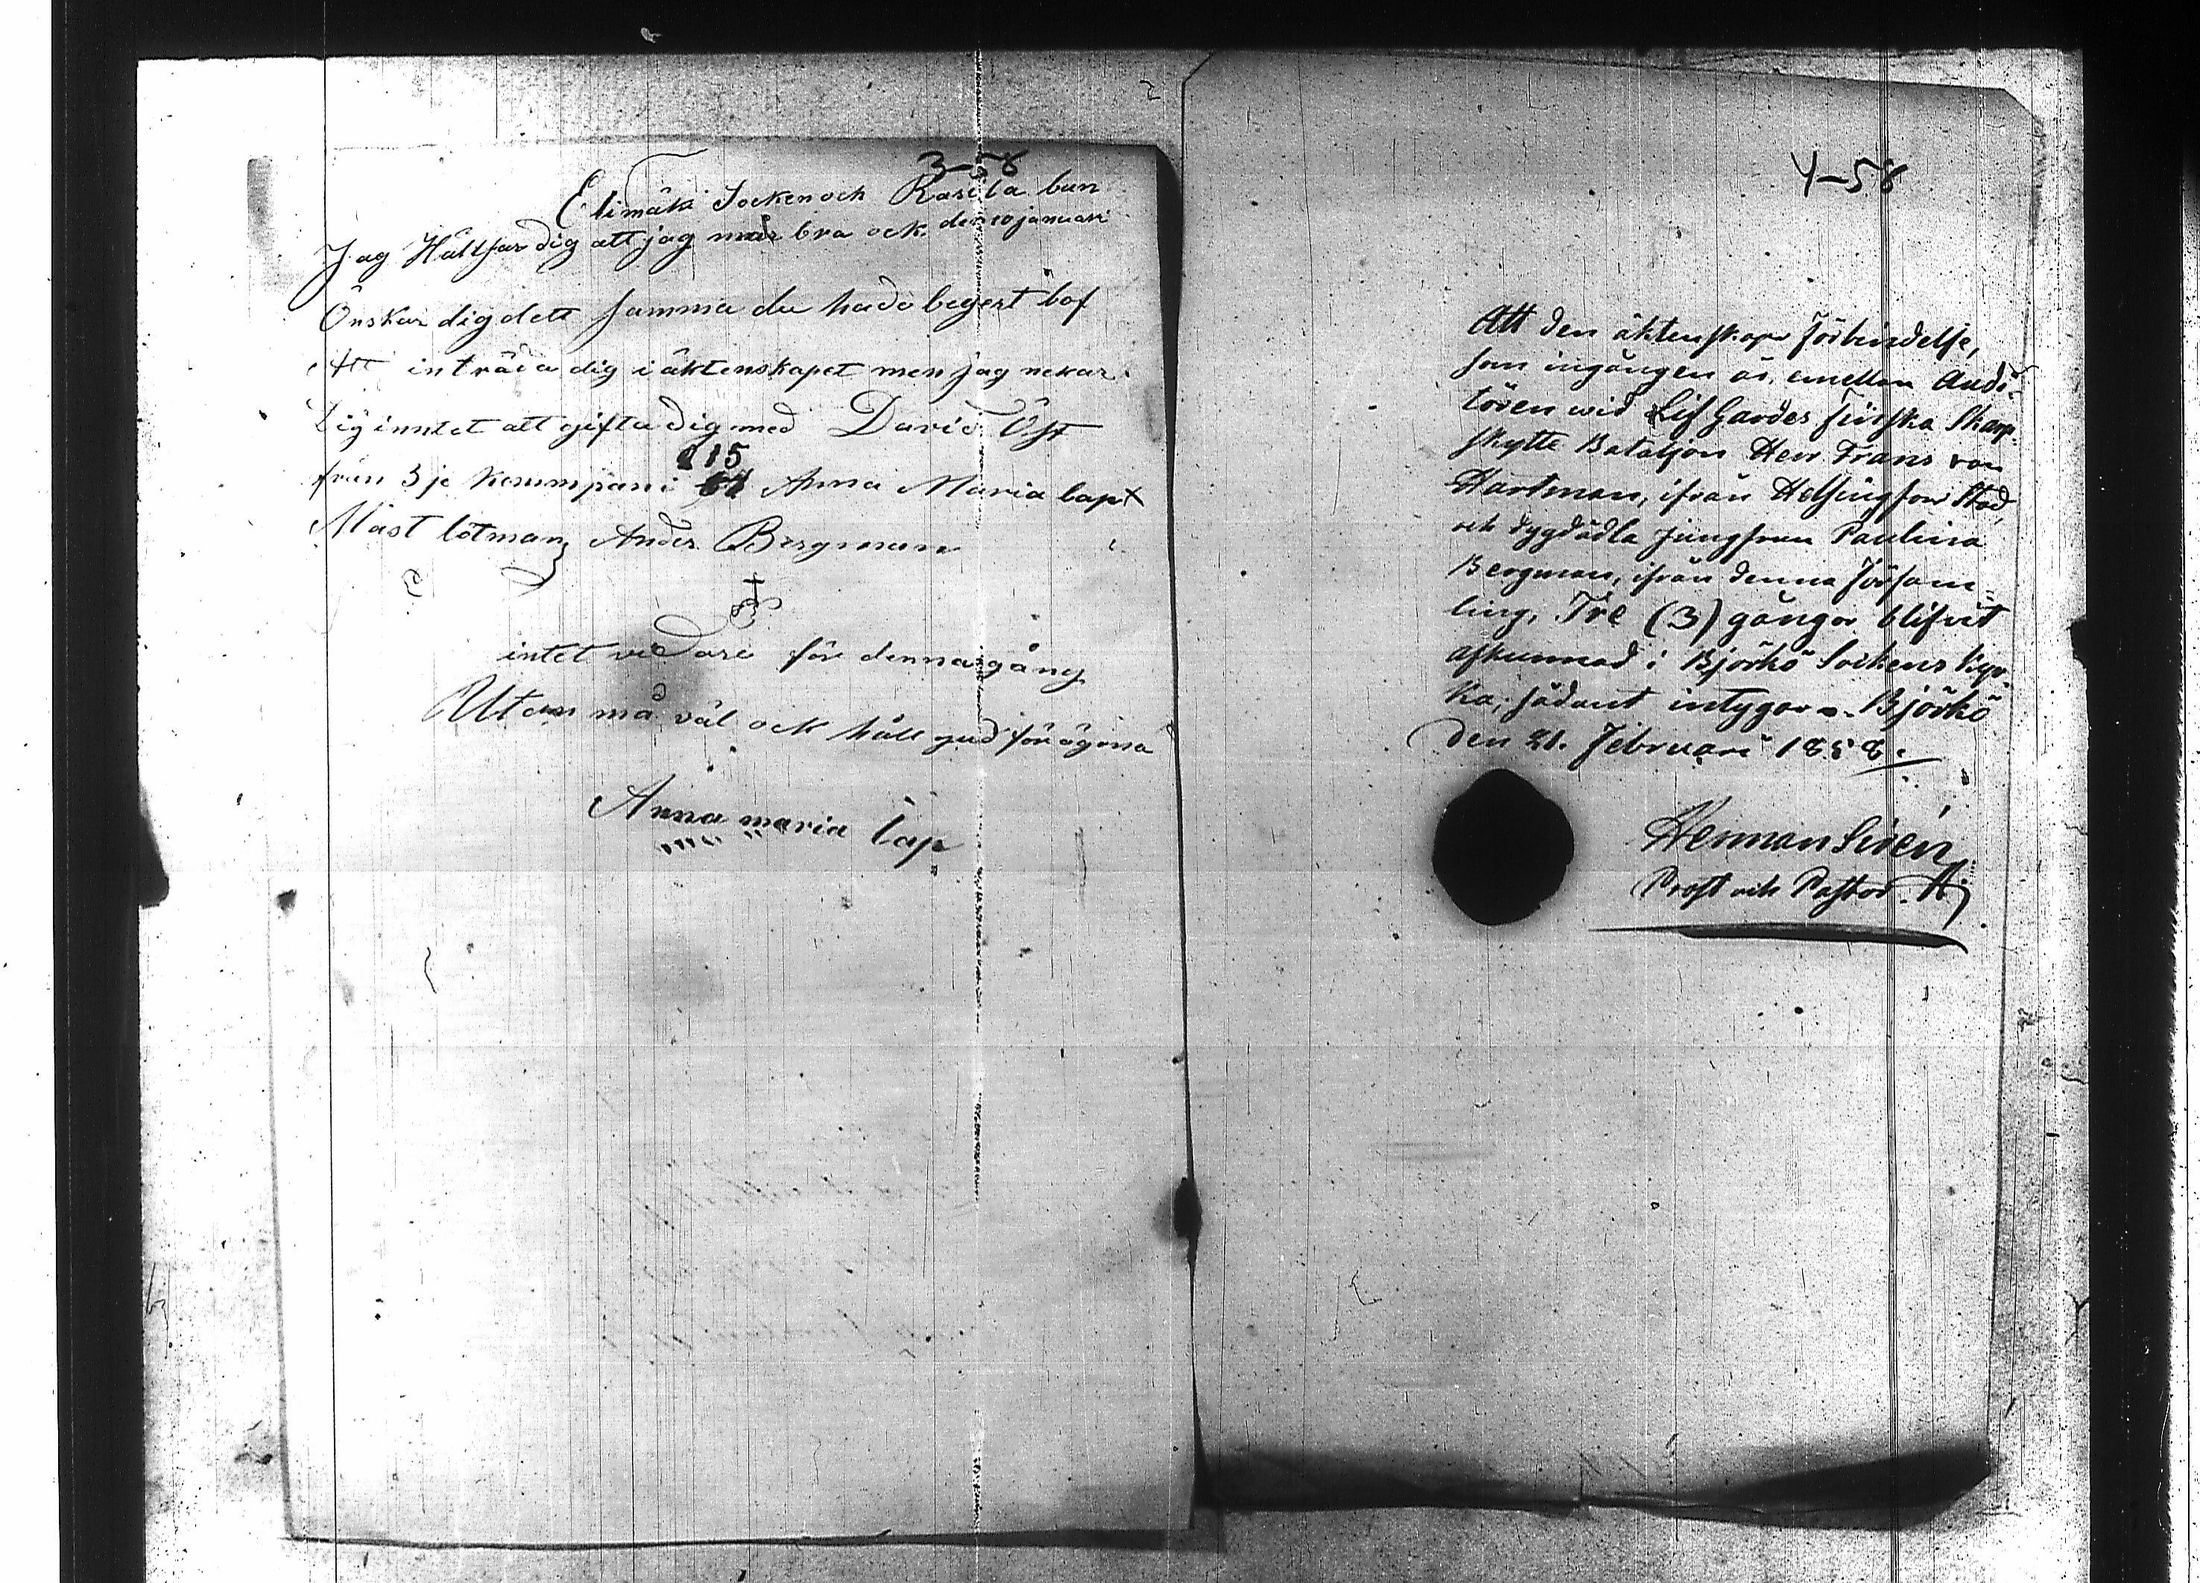 3-58
Elimäki Socken och Rasila bun
den 10 januari
Jag Hälsar dig att jag mår bra ock
Önskar dig dett samma du hade begert lof
Att inträda dig i äktenskapet men jag nekar
Dig inntet att gifta dig med David Öst
från 3je kommpani 115 Anna Maria lap
Mäst lotman Anders Bergman
intet vidare för denna gång
Utan må väl ock håll gud för ögona
Anna maria lap
4-58
Att den äktenskaps förbindelse,
som ingången är, emellan Audi-
tören wid Lif Gardes Finska Skarp-
skytte Bataljon Herr Frans von
Hartman, ifrån Helsingfors Stad,
och dygdädla Jungfrun Paulina
Bergman, ifrån denna Försam-
ling, Tre (3) gångor blifvit
afkunnad i Björkö Sockens Kyr-
ka; sådant intygar. Björkö
den 21. Februari 1858.
Herman Sirén
Prost och Pastor